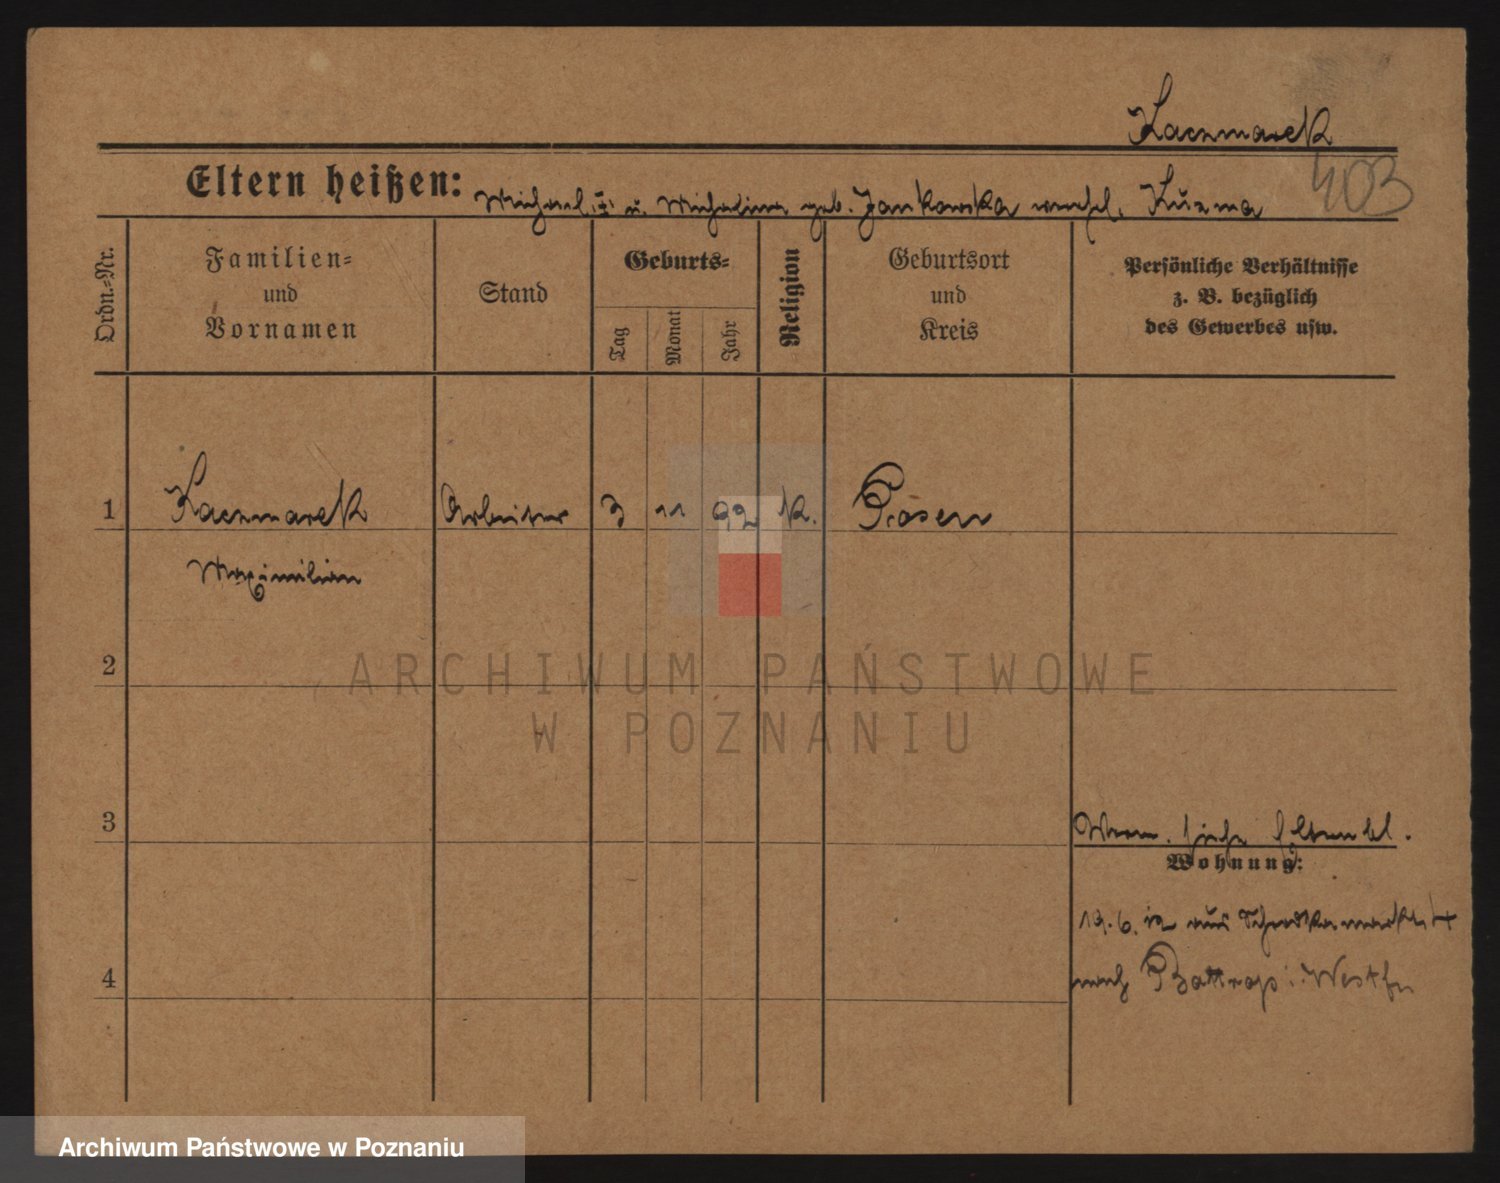 Kaczmarek
403
Eltern heißen: Michael † u. Michalina geb. Jankowska verehel. Kuzma
Ordn.-Nr.
Familien-
und
Vornamen
Stand
Geburts-
Tag
Monat
Jahr
Religion
Geburtsort
und
Kreis
Persönliche Verhältnisse
z. B. bezüglich
des Gewerbes usw.
1 Kaczmarek Arbeiter 3 11 92 K. Posen
Maximilian
2
ARCHIWUM PAŃSTWOWE
W POZNANIU
3
Verm. siehe
Wohnung:
19. 6. 12 aus
4
nach Bottrop i. Westfn
Archiwum Państwowe w Poznaniu